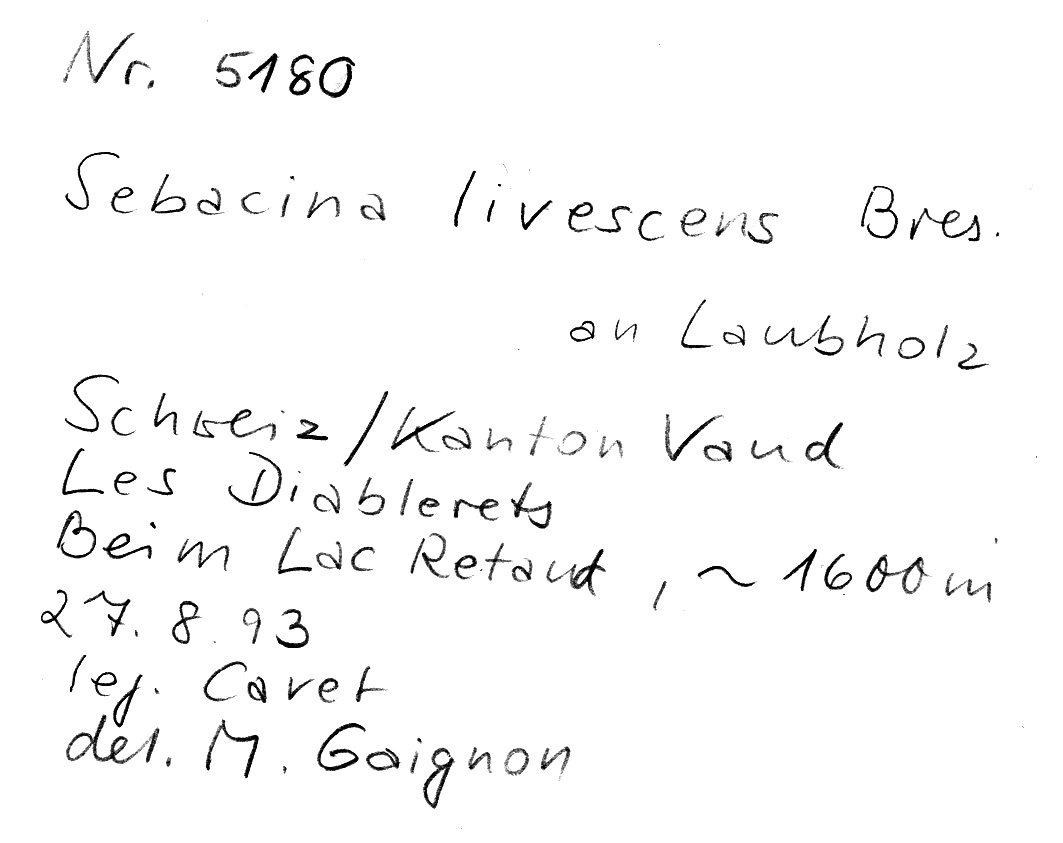 Nr. 5180
Sebacina livescens Bres.
an Laubholz
Schweiz/Kanton Vaud
Les Diablerets
Beim Lac Retaud, ~ 1600m
27. 8. 93
leg. Cavet
det. M. Gaignon